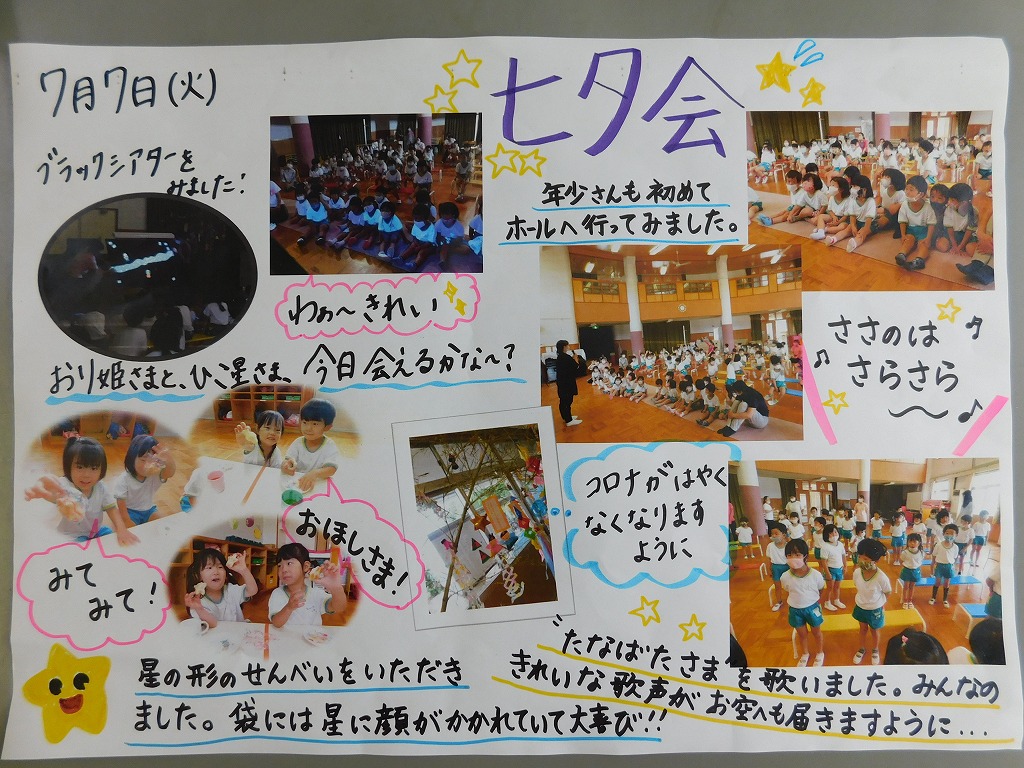 7月7日(火)
七夕会
ブラックシアターを
みました!
年少さんも初めて
ホールへ行ってみました。
わぁ～きれい
おり姫さまと、ひこ星さま、今日会えるかな～?
ささのは
さらさら
～♪
コロナがはやく
なくなります
ように
おほしさま!
みて
みて!
星の形のせんべいをいただき
ました。袋には星に顔がかかれていて大喜び!!
"たなばたさま"を歌いました。みんなの
きれいな歌声がお空へも届きますように...